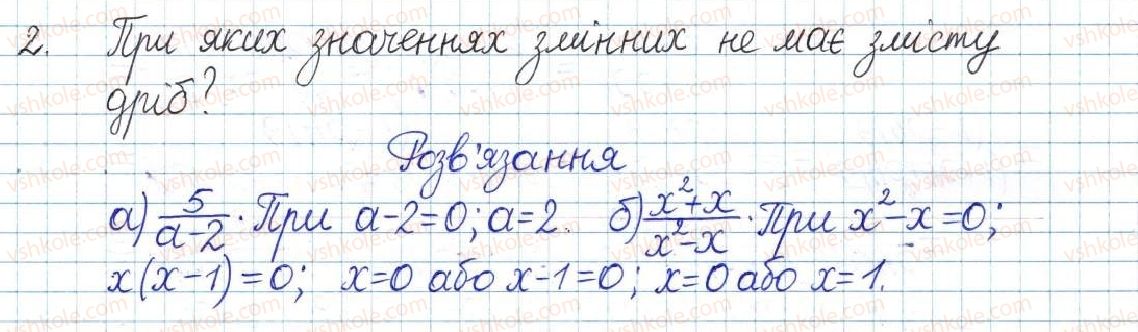 2. При яких значеннях змінних не має змісту
дріб?
Розв'язання
а) 5/(a-2). При a-2=0; a=2. б) (x²+x)/(x²-x). При x²-x=0;
x(x-1)=0; x=0 або x-1=0; x=0 або x=1.